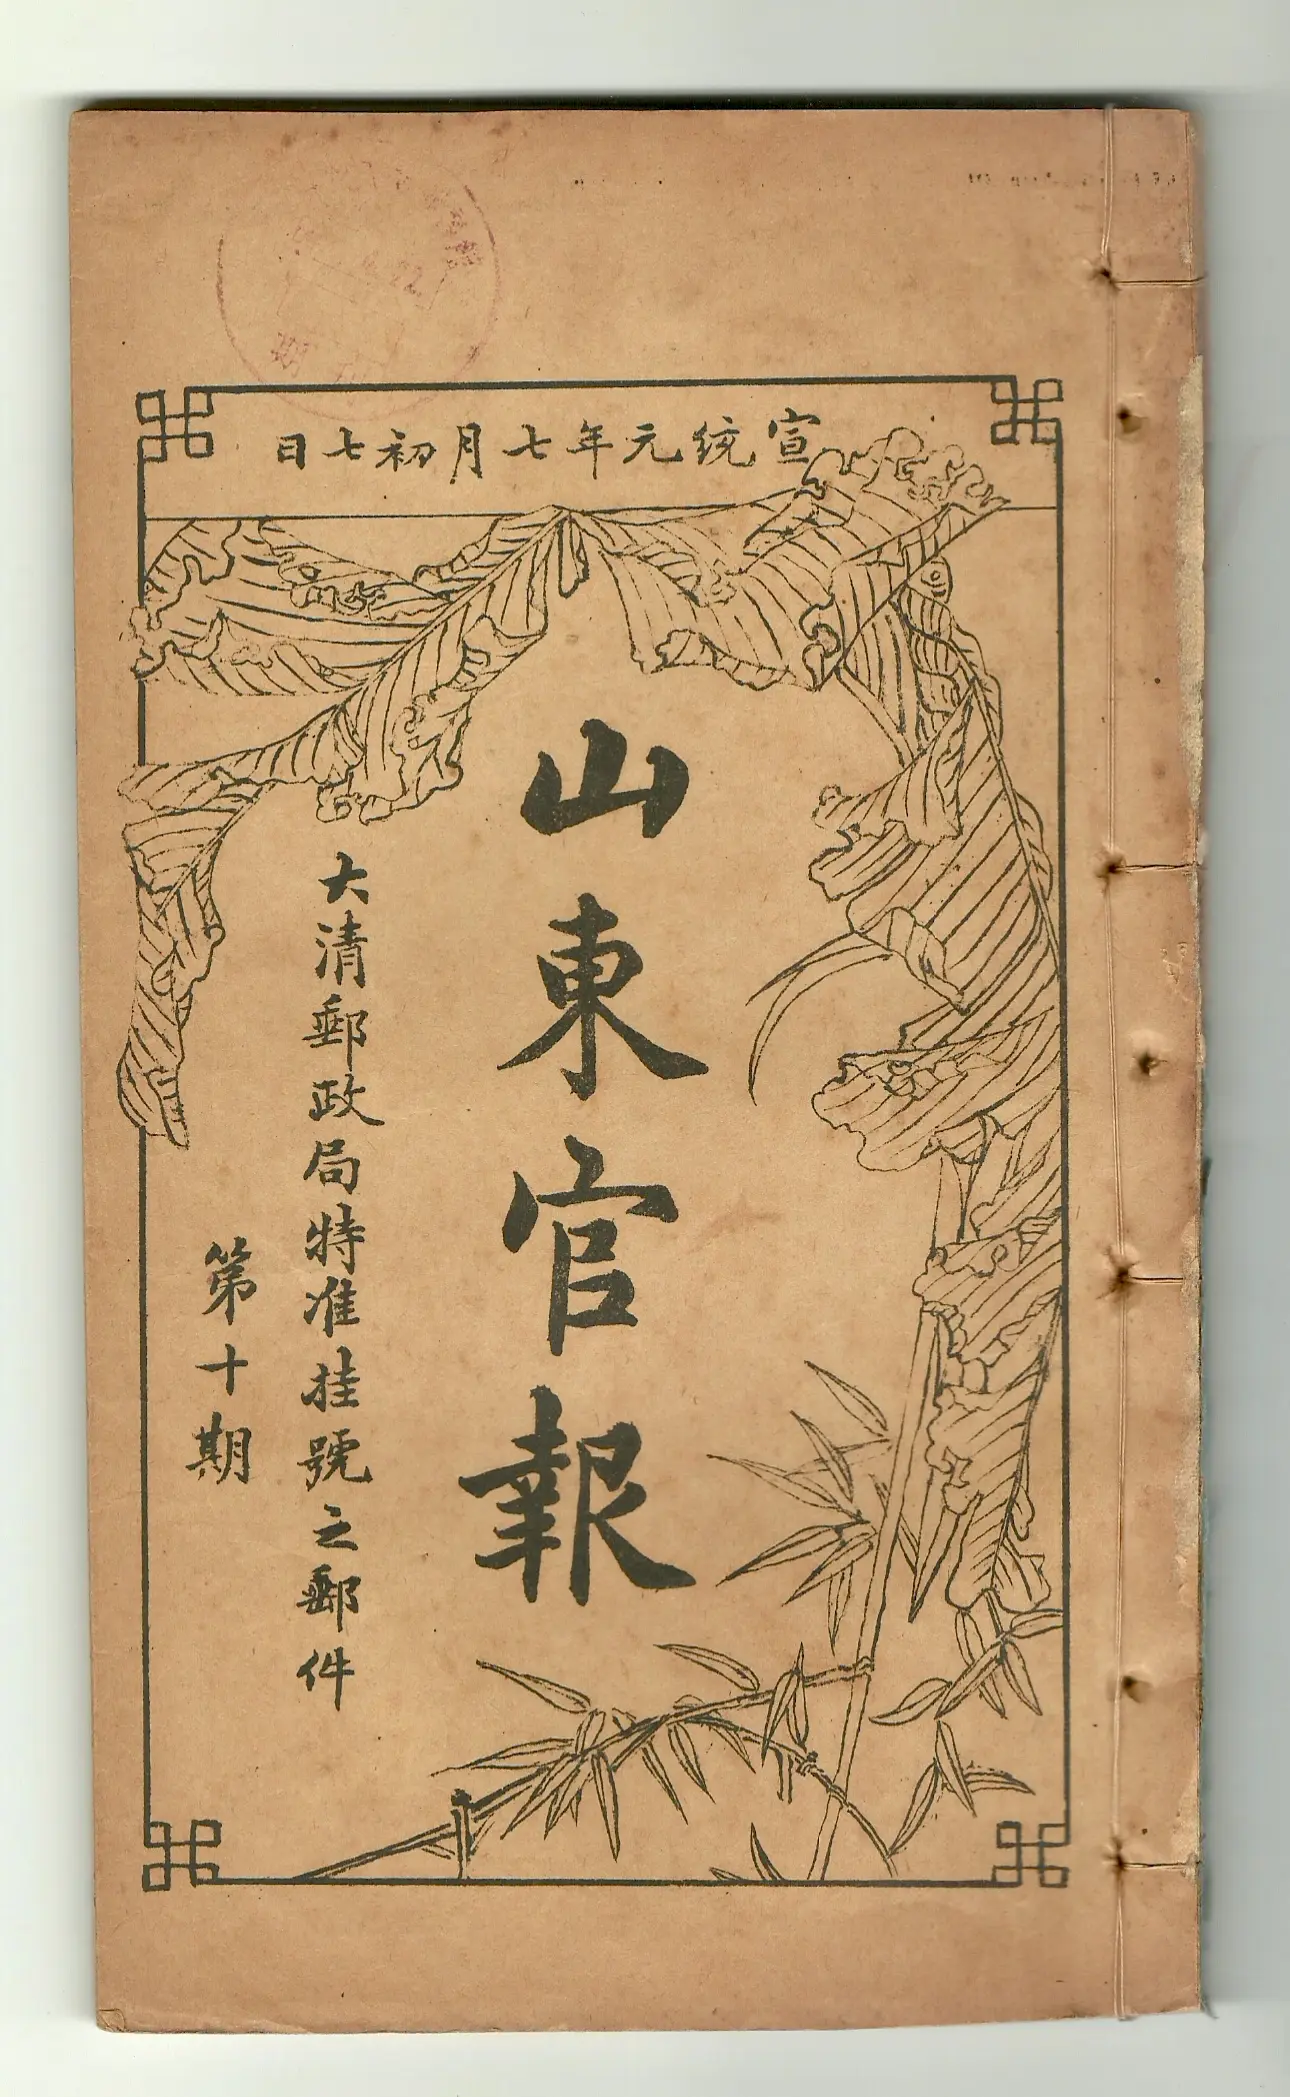 宣統元年七月初七日
山東官報
大清郵政局特准挂號之郵件
第十期